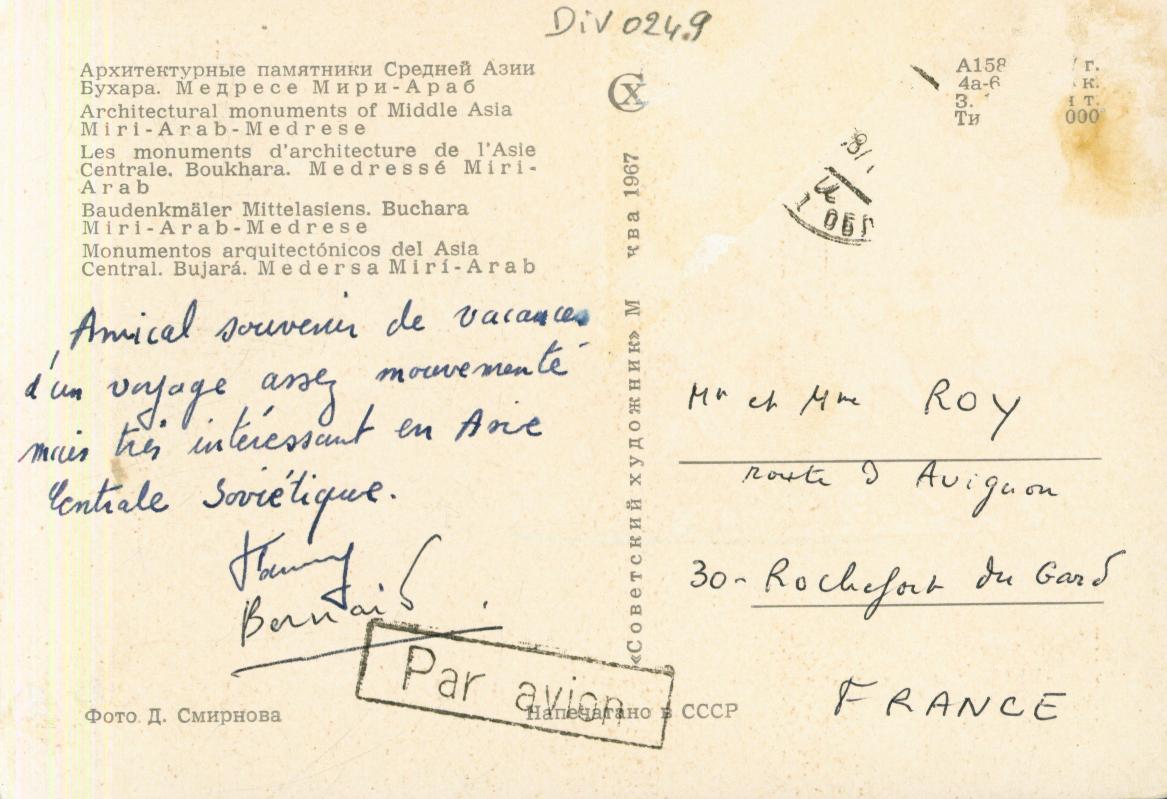 DiV 0249
Архитектурные памятники Средней Азии
Бухара. Медресе Мири-Араб
Architectural monuments of Middle Asia
Miri-Arab-Medrese
Les monuments d'architecture de l'Asie
Centrale. Boukhara. Medressé Miri-
Arab
Baudenkmäler Mittelasiens. Buchara
Miri-Arab-Medrese
Monumentos arquitectónicos del Asia
Central. Bujará. Medersa Mirí-Arab
Amical souvenir de vacances
d'un voyage assez mouvementé
mais très intéressant en Asie
Centrale Soviétique.
Фото Д. Смирнова
«Советский художник» М ква 1967
СХ
А158 г.
4а-6 к.
З. т.
Ти 000
Mr et Mme ROY
route D Avignon
30- Rochefort du Gard
FRANCE
Par avion
Напечатано в СССР